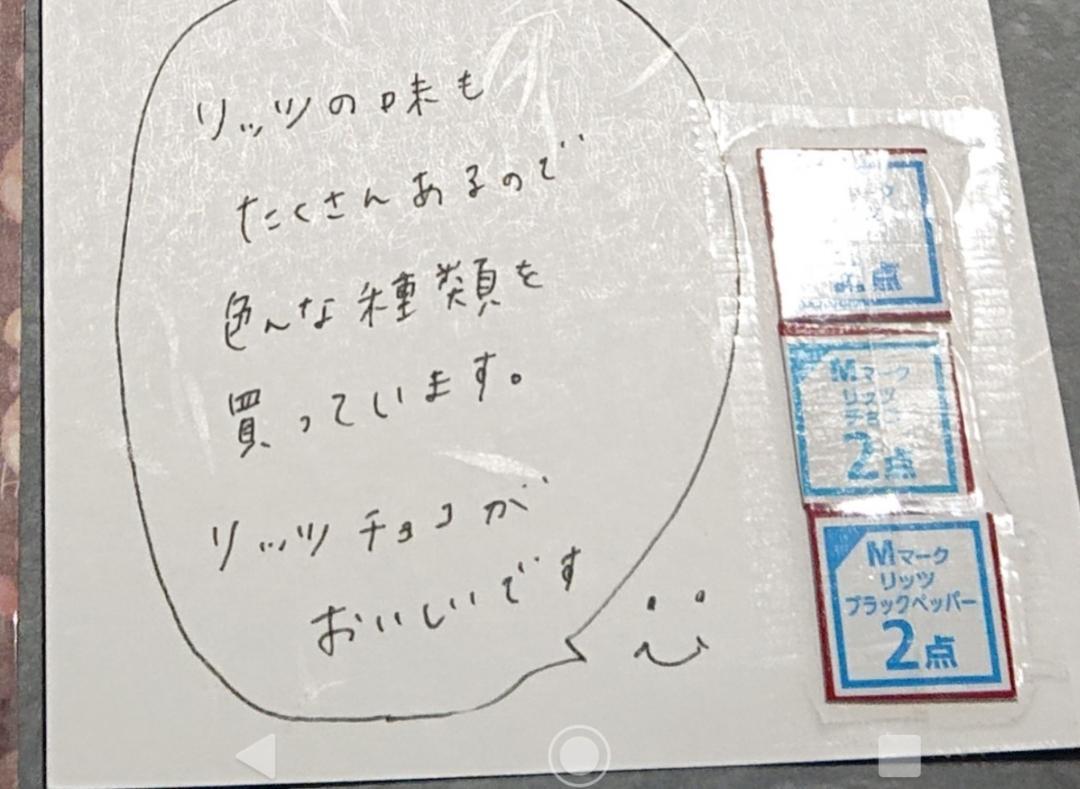 リッツの味も
たくさんあるので
色んな種類を
買っています。
リッツチョコが
おいしいです
点
Mマーク
リッツ
チョコ
2点
Mマーク
リッツ
ブラックペッパー
2点